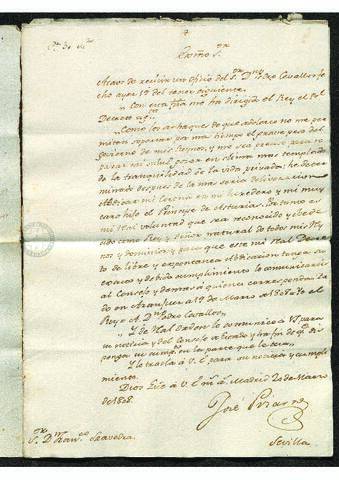 Exmo Sr
Acavo de recivir un oficio del Sr Dn Pedro Cavallos fe
cho ayer 19 del tenor siguiente.
"Con esta fha me ha dirigido el Rey el Rl
Decreto sigte
"Como los achaques de que adolezco no me per
miten soportar por mas tiempo el grave peso del
govierno de mis Reynos, y me sea preciso para re
parar mi salud gozar en clima mas templado
de la tranquilidad de la vida privada; he deter
minado despues de la mas seria deliberacion
abdicar mi Corona en mi heredero y mi muy
caro hijo el Principe de Asturias. Por tanto es
mi Rl voluntad que sea reconocido y obede
cido como Rey y Señor natural de todos mis Rey
nos y dominios y para que este mi Rl Decre
to de libre y expontanea abdicacion tenga su
exacto y debido cumplimiento lo comunicareis
al Consejo y demas a quienes corresponda. Da
do en Aranjuez a 19 de Marzo de 1808. Yo el
Rey = A Dn Pedro Cavallos
"Y de Rl orden lo comunico a VI para
su noticia y del Consejo a efecto y a fin de qe dis
ponga su cumpto en la parte que le toca
Y lo traslado a V.E. para su noticia y cumpli
miento.
Dios gue a V.E. ms as Madrid 20 de Marzo
de 1808
José
Sr Dn Franco Saavedra
Sevilla.